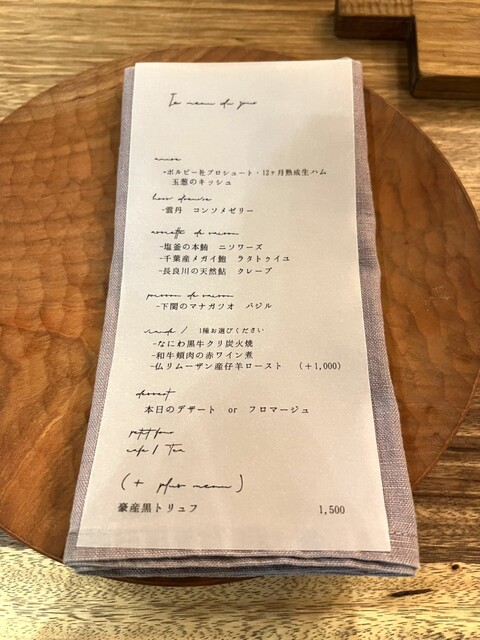 Le menu du jour
amuse
-ボルピー社プロシュート・12ヶ月熟成生ハム
玉葱のキッシュ
hors d'œuvre
-雲丹 コンソメゼリー
assiette de saison
-塩釜の本鮪 ニソワーズ
-千葉産メガイ鮑 ラタトゥイユ
-長良川の天然鮎 クレープ
poisson de saison
-下関のマナガツオ バジル
viande / 1種お選びください
-なにわ黒牛クリ炭火焼
-和牛頬肉の赤ワイン煮
-仏リムーザン産仔羊ロースト (+1,000)
dessert
本日のデザート or フロマージュ
petit four
cafe / Tea
(+ plus menu)
豪産黒トリュフ 1,500